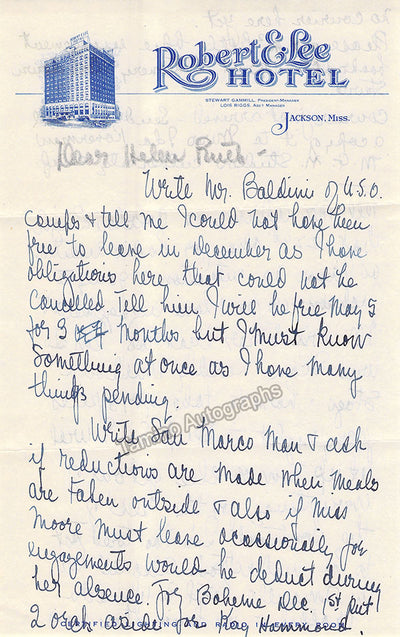 Robert E. Lee
HOTEL
STEWART GAMMILL, PRESIDENT-MANAGER
LOIS RIGGS, ASS'T MANAGER
JACKSON, MISS.
Dear Helen Ruth -
Write Mr. Baldini of U.S.O.
camps & tell me I could not have been
free to leave in December as I have
obligations here that could not be
cancelled Tell him I will be free May 5
for 3 months but I must know
something at once as I have many
things pending.
Write San Marco Man & ask
if reductions are made when meals
are taken outside & also if Miss
Moore must leave ocassionally for
engagements would he deduct during
her absence. For Boheme Dec. 1st put
2 orch aside for Ray Hammond
Tamino Autographs
CERTIFIED LIGHTING AND RADIO IN EVERY ROOM